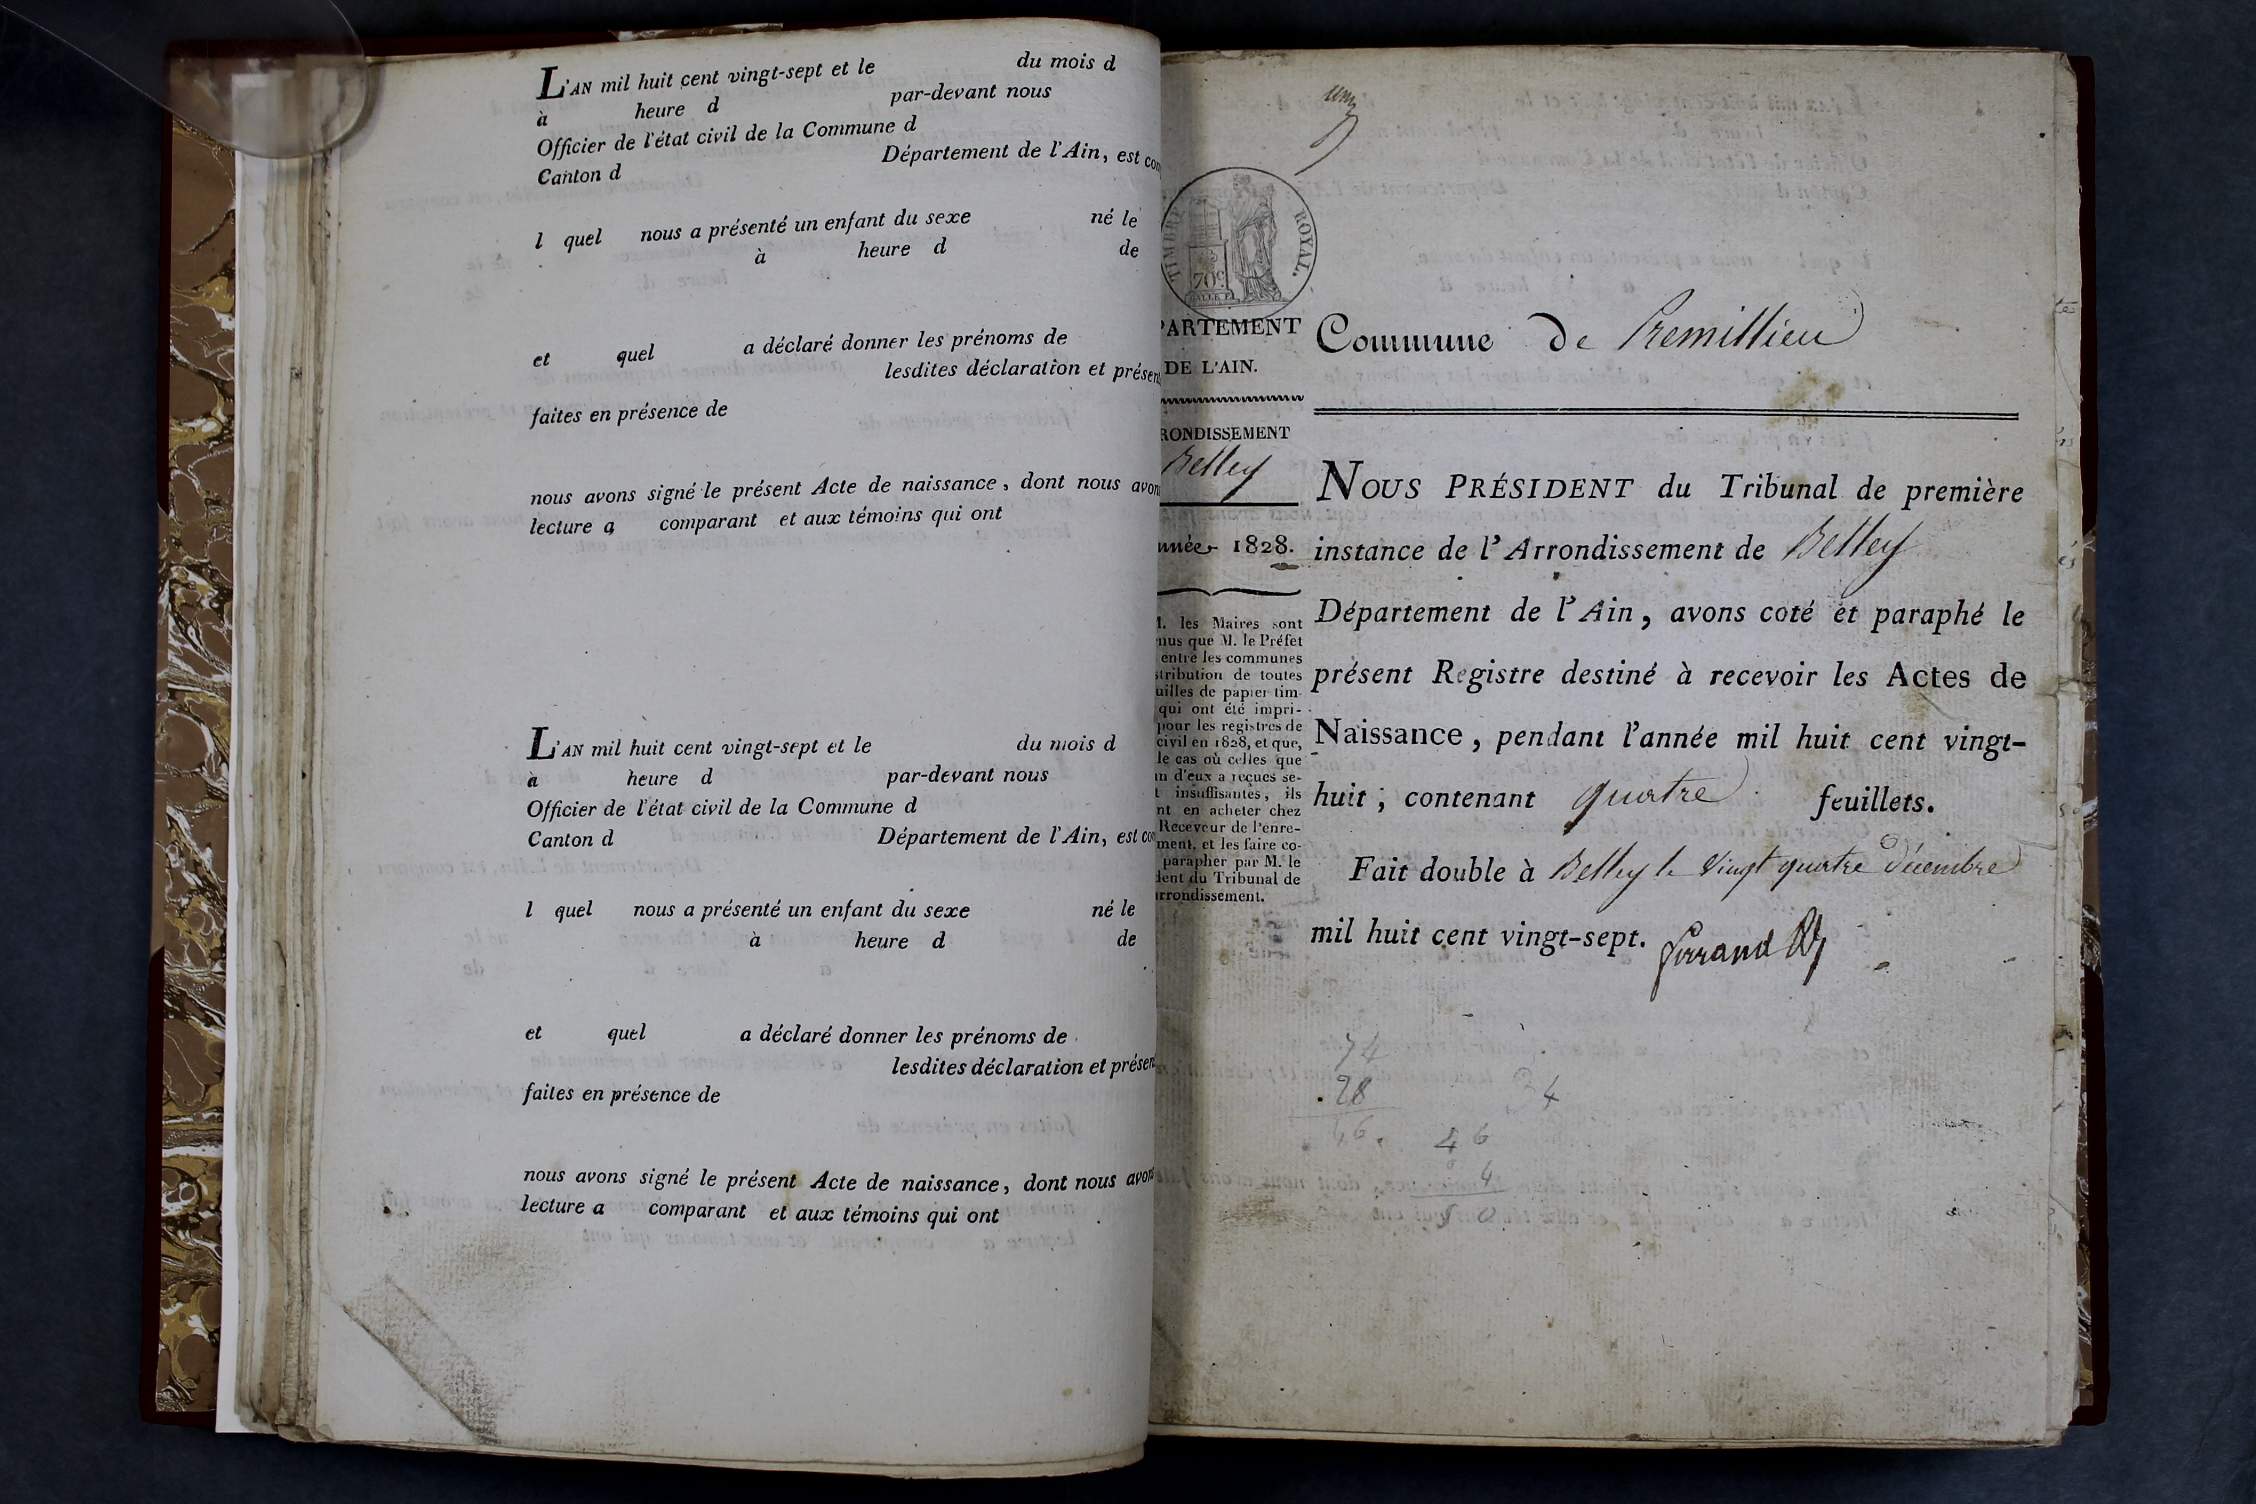 L'AN mil huit cent vingt-sept et le du mois d
à heure d par-devant nous
Officier de l'état civil de la Commune d
Canton d Département de l'Ain, est com
l quel nous a présenté un enfant du sexe né le
à heure d de
et quel a déclaré donner les prénoms de
lesdites déclaration et présent
faites en présence de
nous avons signé le présent Acte de naissance, dont nous avons
lecture a comparant et aux témoins qui ont
L'AN mil huit cent vingt-sept et le du mois d
à heure d par-devant nous
Officier de l'état civil de la Commune d
Canton d Département de l'Ain, est com
l quel nous a présenté un enfant du sexe né le
à heure d de
et quel a déclaré donner les prénoms de
lesdites déclaration et présen
faites en présence de
nous avons signé le présent Acte de naissance, dont nous avons
lecture a comparant et aux témoins qui ont
TIMBRE ROYAL.
70c
PARTEMENT
DE L'AIN.
RONDISSEMENT
Belley
nnée 1828.
M. les Maires sont
nus que M. le Préfet
entre les communes
stribution de toutes
uilles de papier tim-
qui ont été impri-
pour les registres de
civil en 1828, et que,
le cas où celles que
un d'eux a reçues se-
t insuffisantes, ils
nt en acheter chez
Receveur de l'enre-
ment, et les faire co-
parapher par M. le
dent du Tribunal de
rrondissement.
Commune De Premillieu
NOUS PRÉSIDENT du Tribunal de première
instance de l'Arrondissement de Belley
Département de l'Ain, avons coté et paraphé le
présent Registre destiné à recevoir les Actes de
Naissance, pendant l'année mil huit cent vingt-
huit; contenant quatre feuillets.
Fait double à Belley le Vingt quatre Décembre
mil huit cent vingt-sept.
74
28
46
34
46
4
50